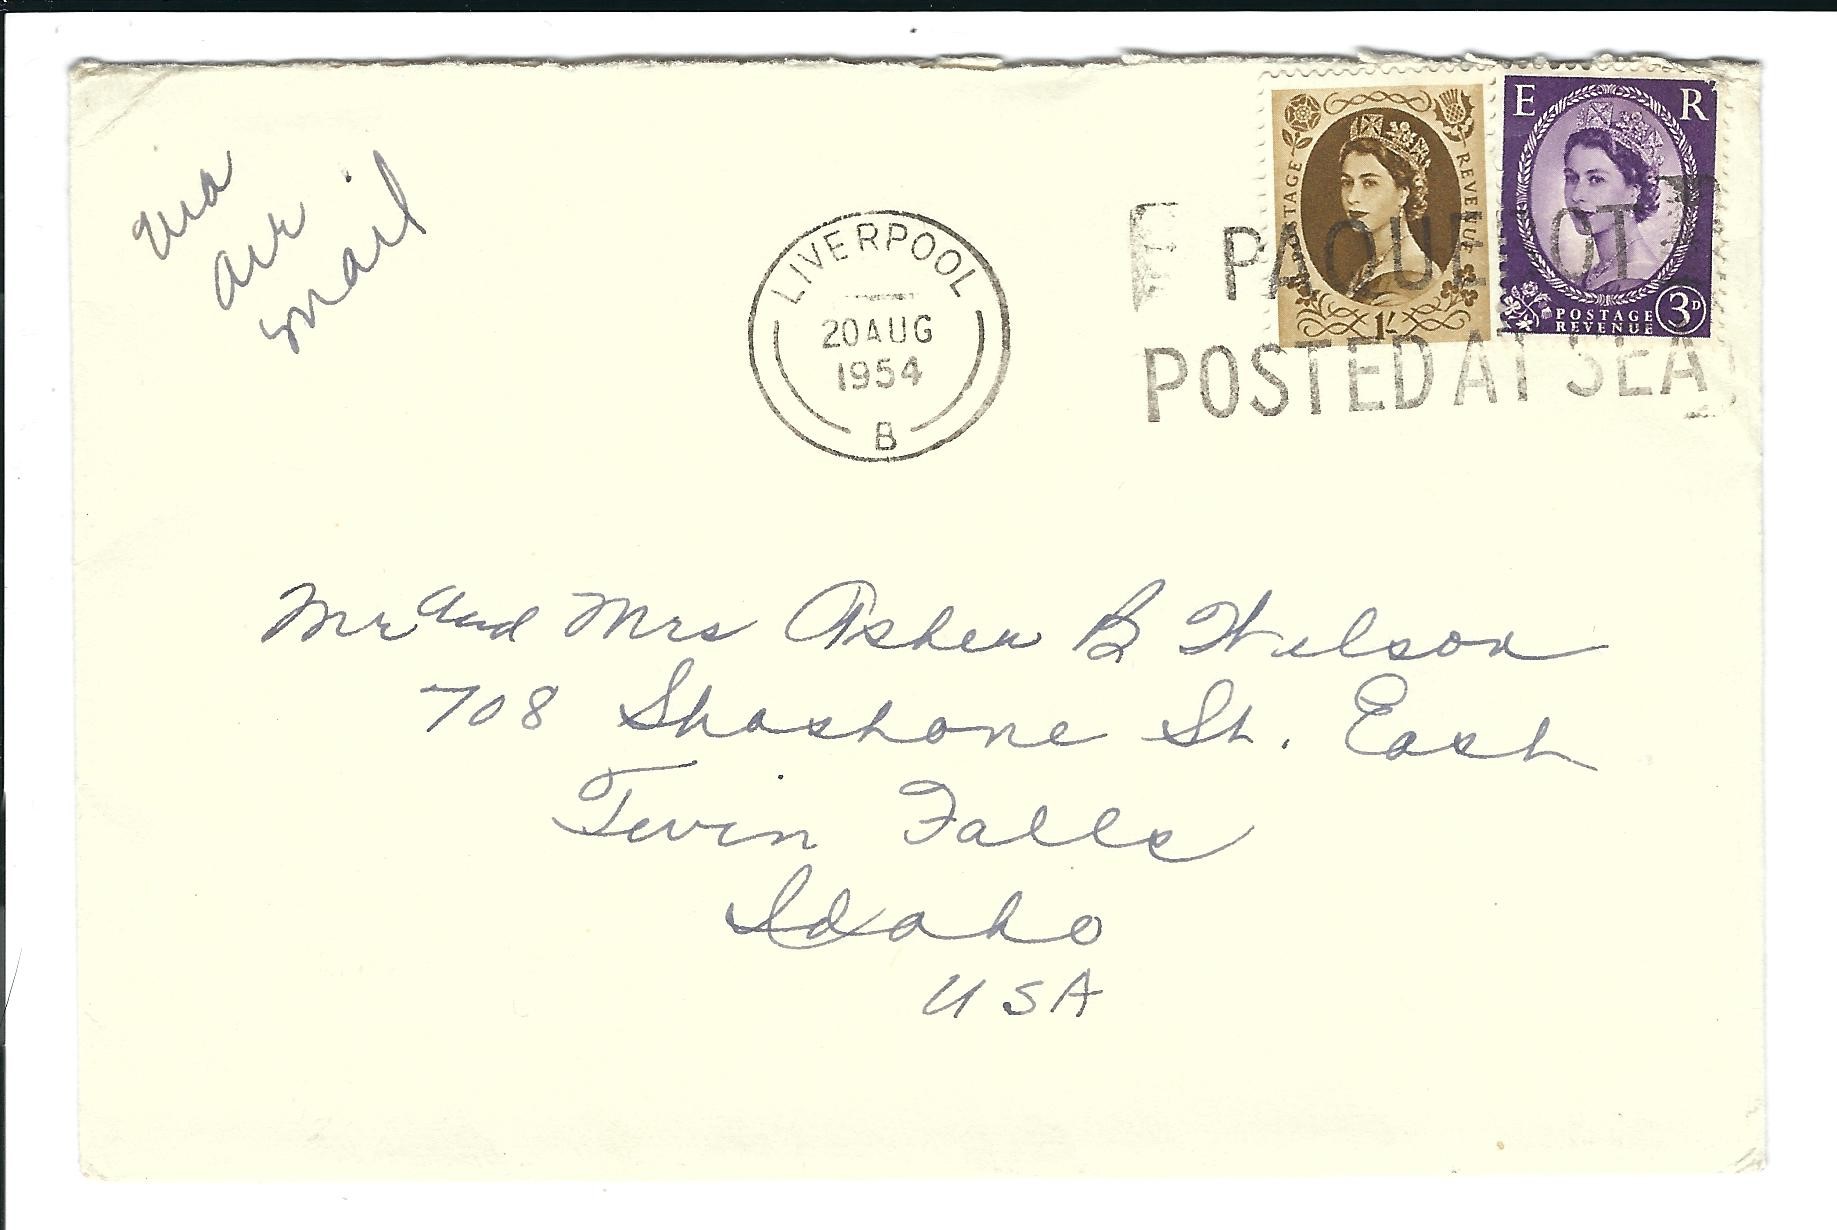 via
air
mail
LIVERPOOL
20 AUG
1954
B
PAQUEBOT
POSTED AT SEA
POSTAGE REVENUE
1/-
E R
POSTAGE
REVENUE
3D
Mr and Mrs Asher B Wilson
708 Shoshone St. East
Twin Falls
Idaho
USA